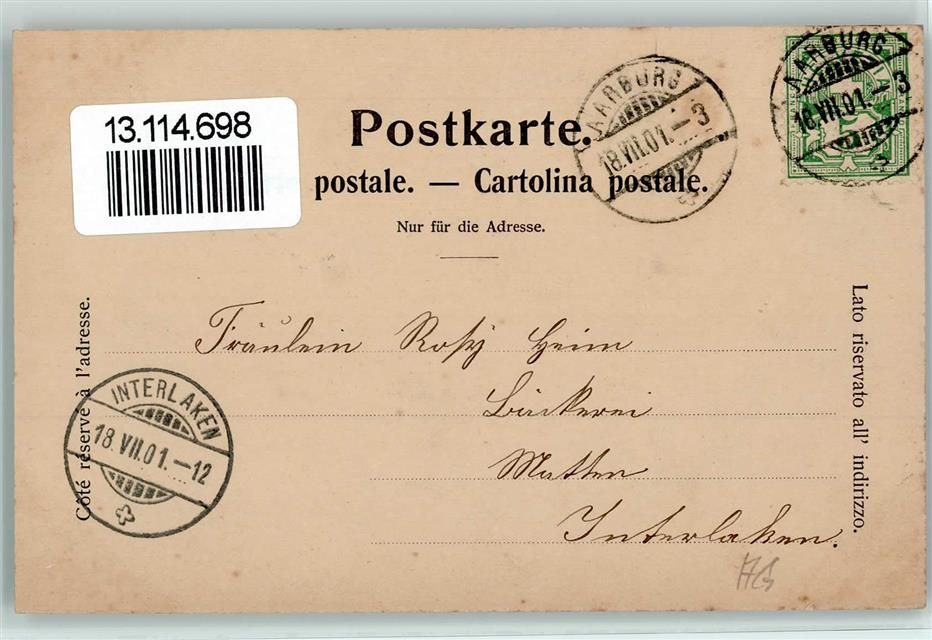 13.114.698
Postkarte.
postale. — Cartolina postale.
Nur für die Adresse.
AARBURG
18.VII.01.–3
AARBURG
18.VII.01.–3
Côté réservé à l'adresse.
Lato riservato all' indirizzo.
Fräulein Rosy Heim
Bäckerei
Matten
Interlaken.
INTERLAKEN
18.VII.01.–12